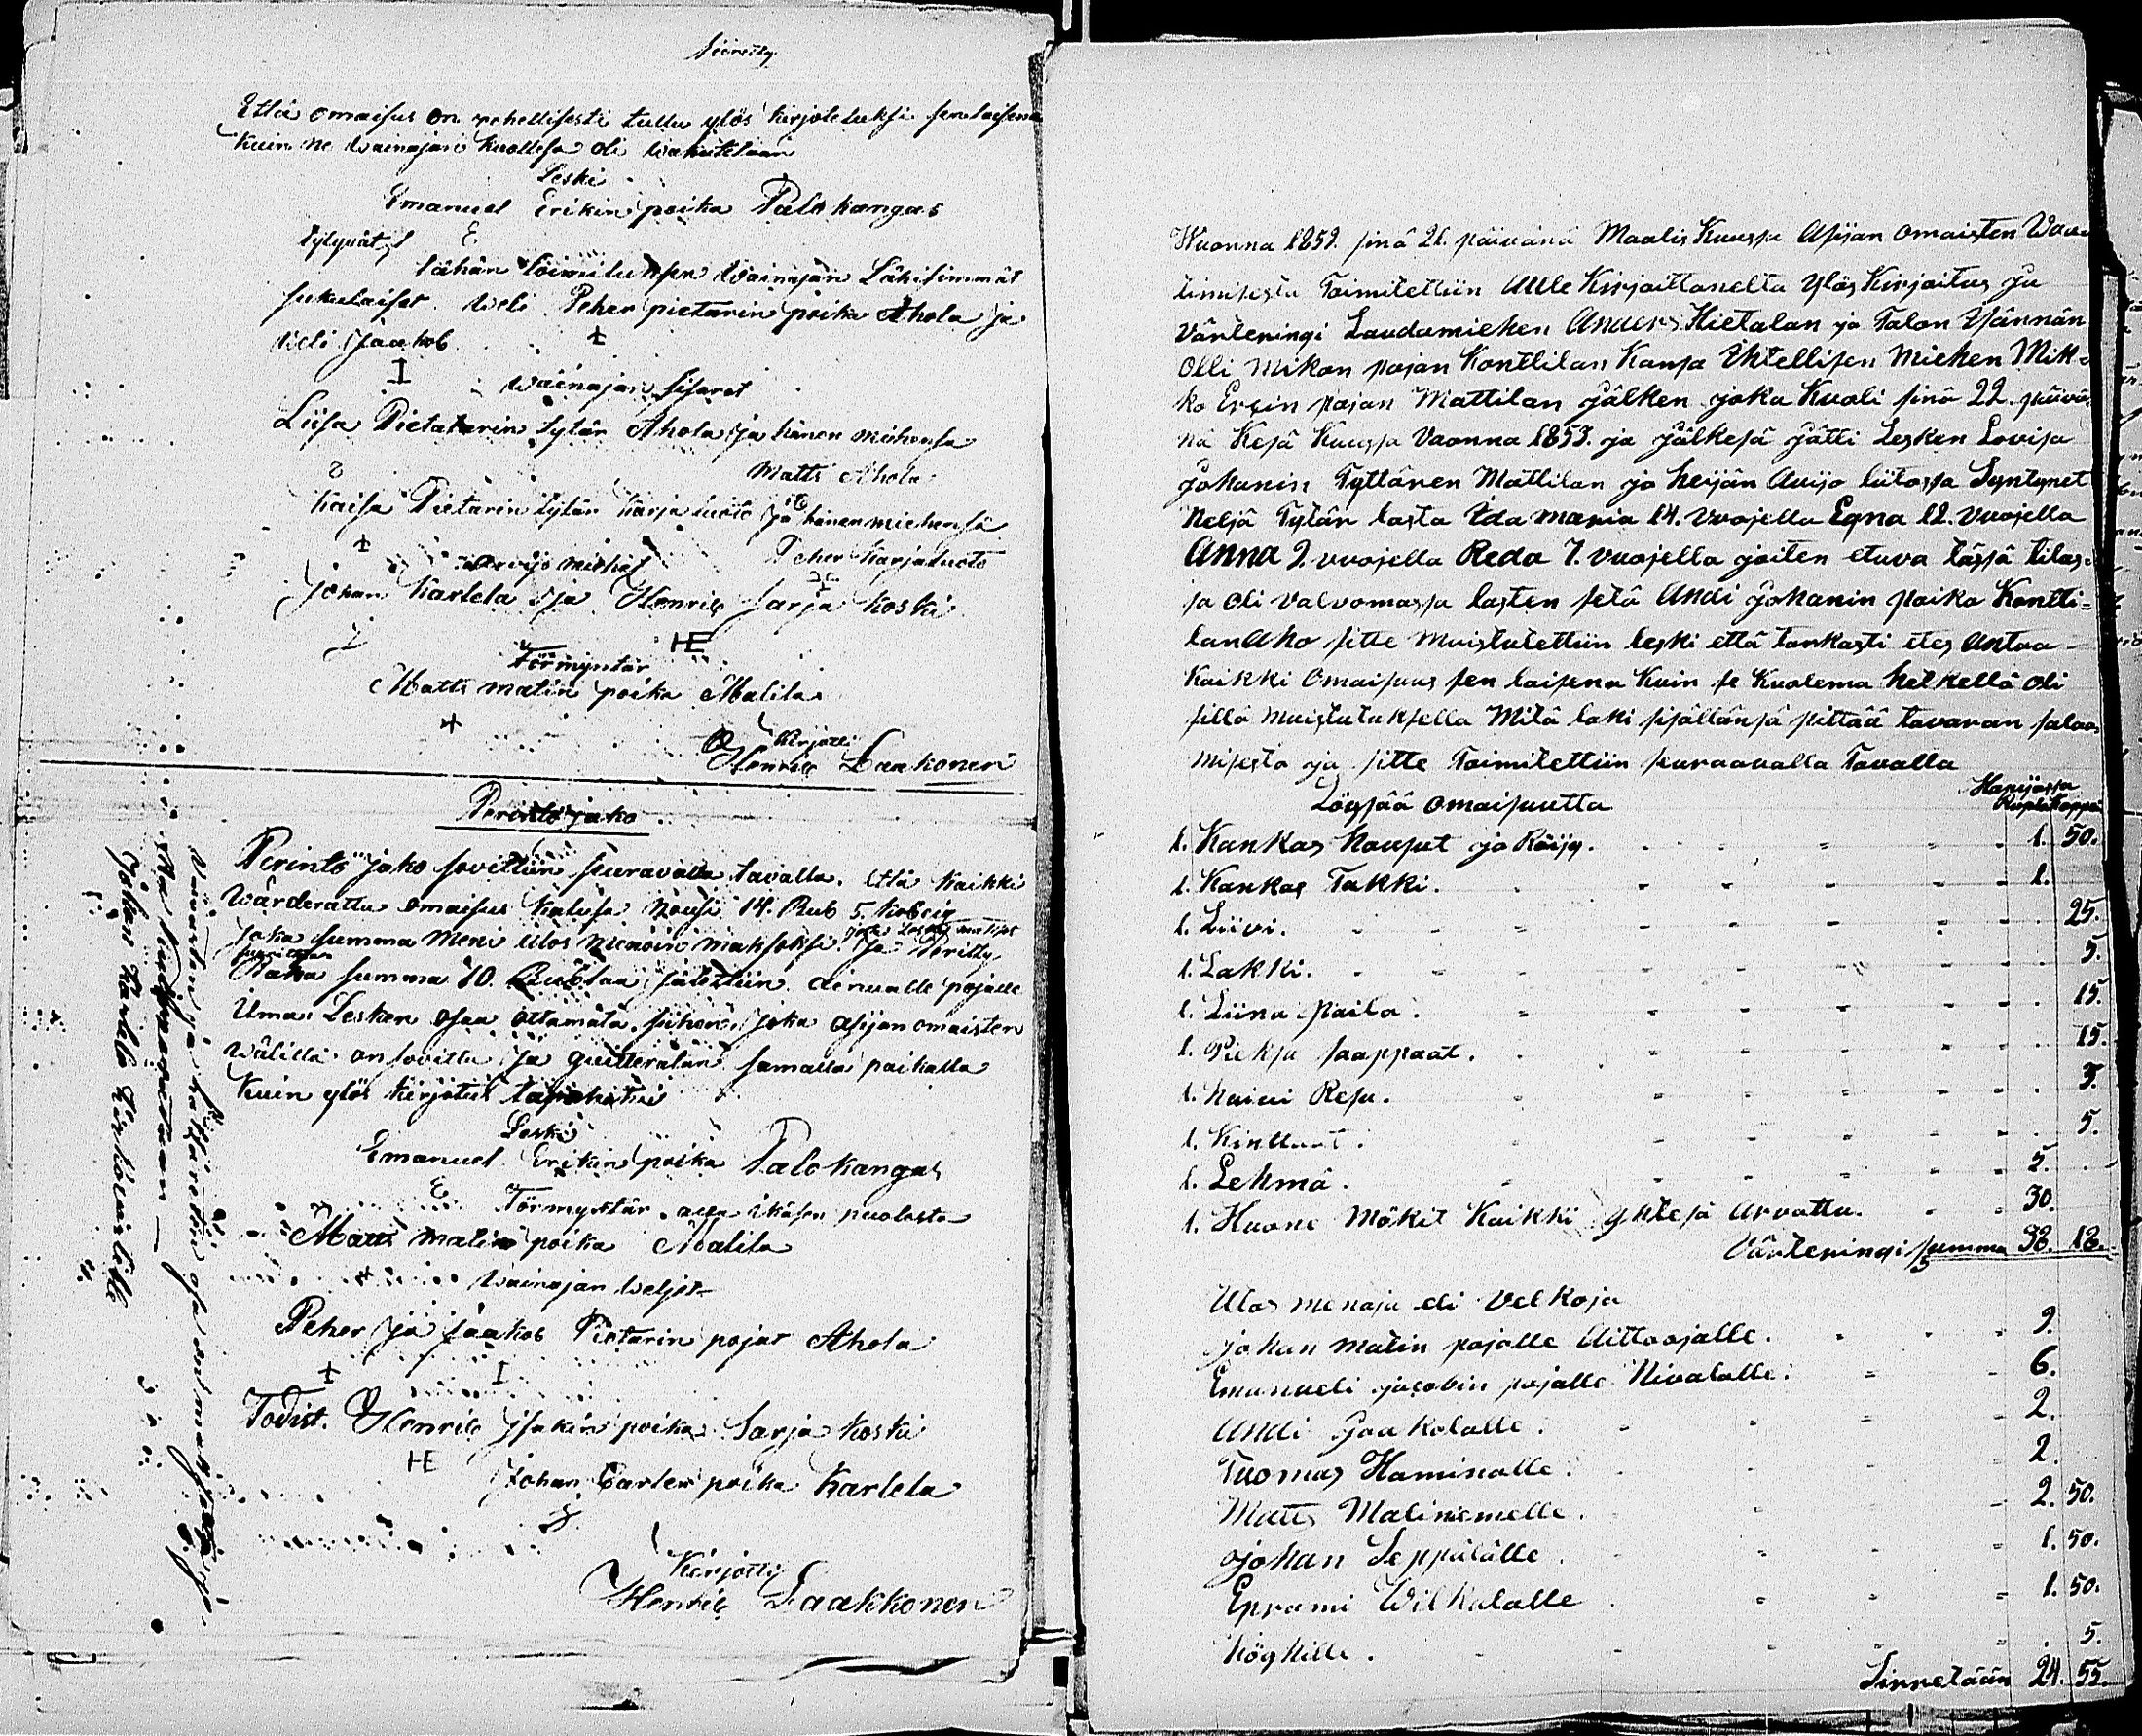 Siirretty
Että omaisus on rehellisesti tullu ylös kirjoteluksi senlaisena
kuin ne Wainajan kuollesa oli wakutetaan
Leski
Emanuel Erikin poika Palokangas
E
tähän toimituksen Wainajan Lähisimmät
sukulaiset Weli Peher pietarin poika Ahola ja
Weli Jaakob
I
wainajan sisaret
Liisa Pietatarin tytär Ahola ja hänen miehensä
Matts Ahola
Kaisa Pietarin tytär Karjaluoto ja hänen miehensä
Peher Karjaluoto
arvijo miehet
Johan Karlela ja Henric Sarja koski
HE
Förmyntär
Matts matin poika Malila
Kirjotti
Henric Laakonen
Perintö jako
Perintö jako sovittiin seuravalla tavalla. että kaikki
Wärderattu omaisus kalusa nousi 14. Rub 5. kobeig
joka summa meni ulos menoin maksoksi. ja Peritty
Raha summa 10. Rublaa jätettiin alenualle pojalle
ilma Lesken osaa ottamata. siihen. joka asijan omaisten
wälillä on sovittu ja quitteratan samalla paikalla
kuin ylös kirjotus tapahtui
Leski
Emanuel Erikin poika Palokangas
E
Törmyntär ala ikäsen puolesta
Matts matin poika Malila
Wainajan weljet
Peher ja Jaakob Pietarin pojat Ahola
I
Todist. Henric Isakin poika Sarja koski
HE
Johan Carlen poika Karlela
Kirjotti
Henric Laakkonen
Johan Karlela
Wuonna 1859. sinä 21. päivänä Maalis Kuussa Asijan omaisten Vaa-
timisesta Toimitettiin Alle Kirjoittanelta Ylös Kirjoitus ja
Värteringi Laudamiehen Anders Hietalan ja Talon Isännän
Olli Mikon pojan Konttilan Kansa Ihtellisen Miehen Mik-
ko Ersin pojan Mattilan jälken joka Kuoli sinä 22. päivä-
nä Kesä Kuussa Vuonna 1853. ja jälkesä jätti Lesken Lovisa
Johanin Tyttären Mattilan ja heijän Avijo liitossa Syntynet
Neljä Tytär lasta Ida maria 14. vuojella Eqna 12. vuojella
Anna 9. vuojella Reda 7. vuojella joiten etuva tässä tilas-
sa oli valvomassa lasten setä Andi Johanin poika Kontti=
lanAho sitte Muistutettiin leski että tarkasti etes Antaa
Kaikki Omaisuus sen laisena Kuin se Kuolema hetkellä oli
sillä muistutuksella Mitä laki sisällänsä pittää tavaran salaa-
misesta ja sitte Toimitettiin seuraavalla Tavalla
Löysää omaisuutta
Hapijassa
Rupla Koppe
1. Kankas housut ja Röijy. 1. 50.
1. Kankas Takki. 1.
1. Liivi. 25.
1. Lakki. 5.
1. Liina paila. 15.
1. Pieksu saappaat. 15.
1. huivi Resu. 3.
1. Kinttaat. 5.
1. Lehmä. 5.
1. Huone Mökit Kaikki yhtesä Arvattu. 30.
Värteringi summa 38. 18.
Ulos menoja eli Velkoja
Johan Matin pojalle Aittoojalle. 9.
Emanueli jacobin pojalle Nivalalle. 6.
Andi Jaakolalle. 2.
Tuomas Haminalle. 2.
Matts Malinemelle. 2. 50.
Johan Seppälälle. 1. 50.
Eprami Wilkalalle 1. 50.
Köyhille. 5.
Siirretään 24. 55.